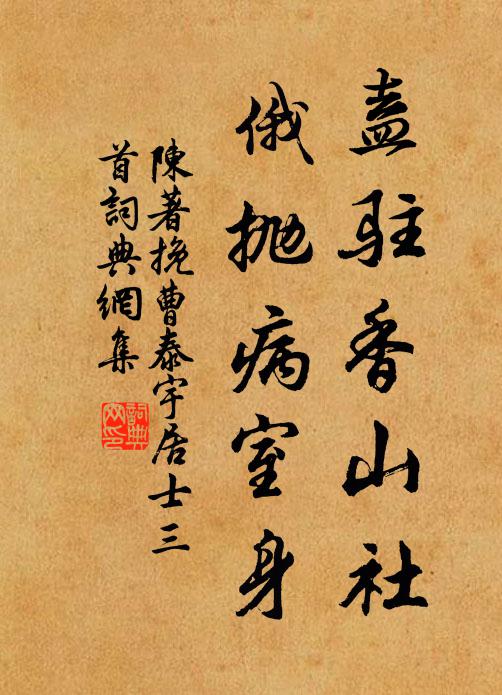 盍駐香山社
俄抛病室身
陳著挽曹泰宇居士三
首詞典網集
詞典
网印